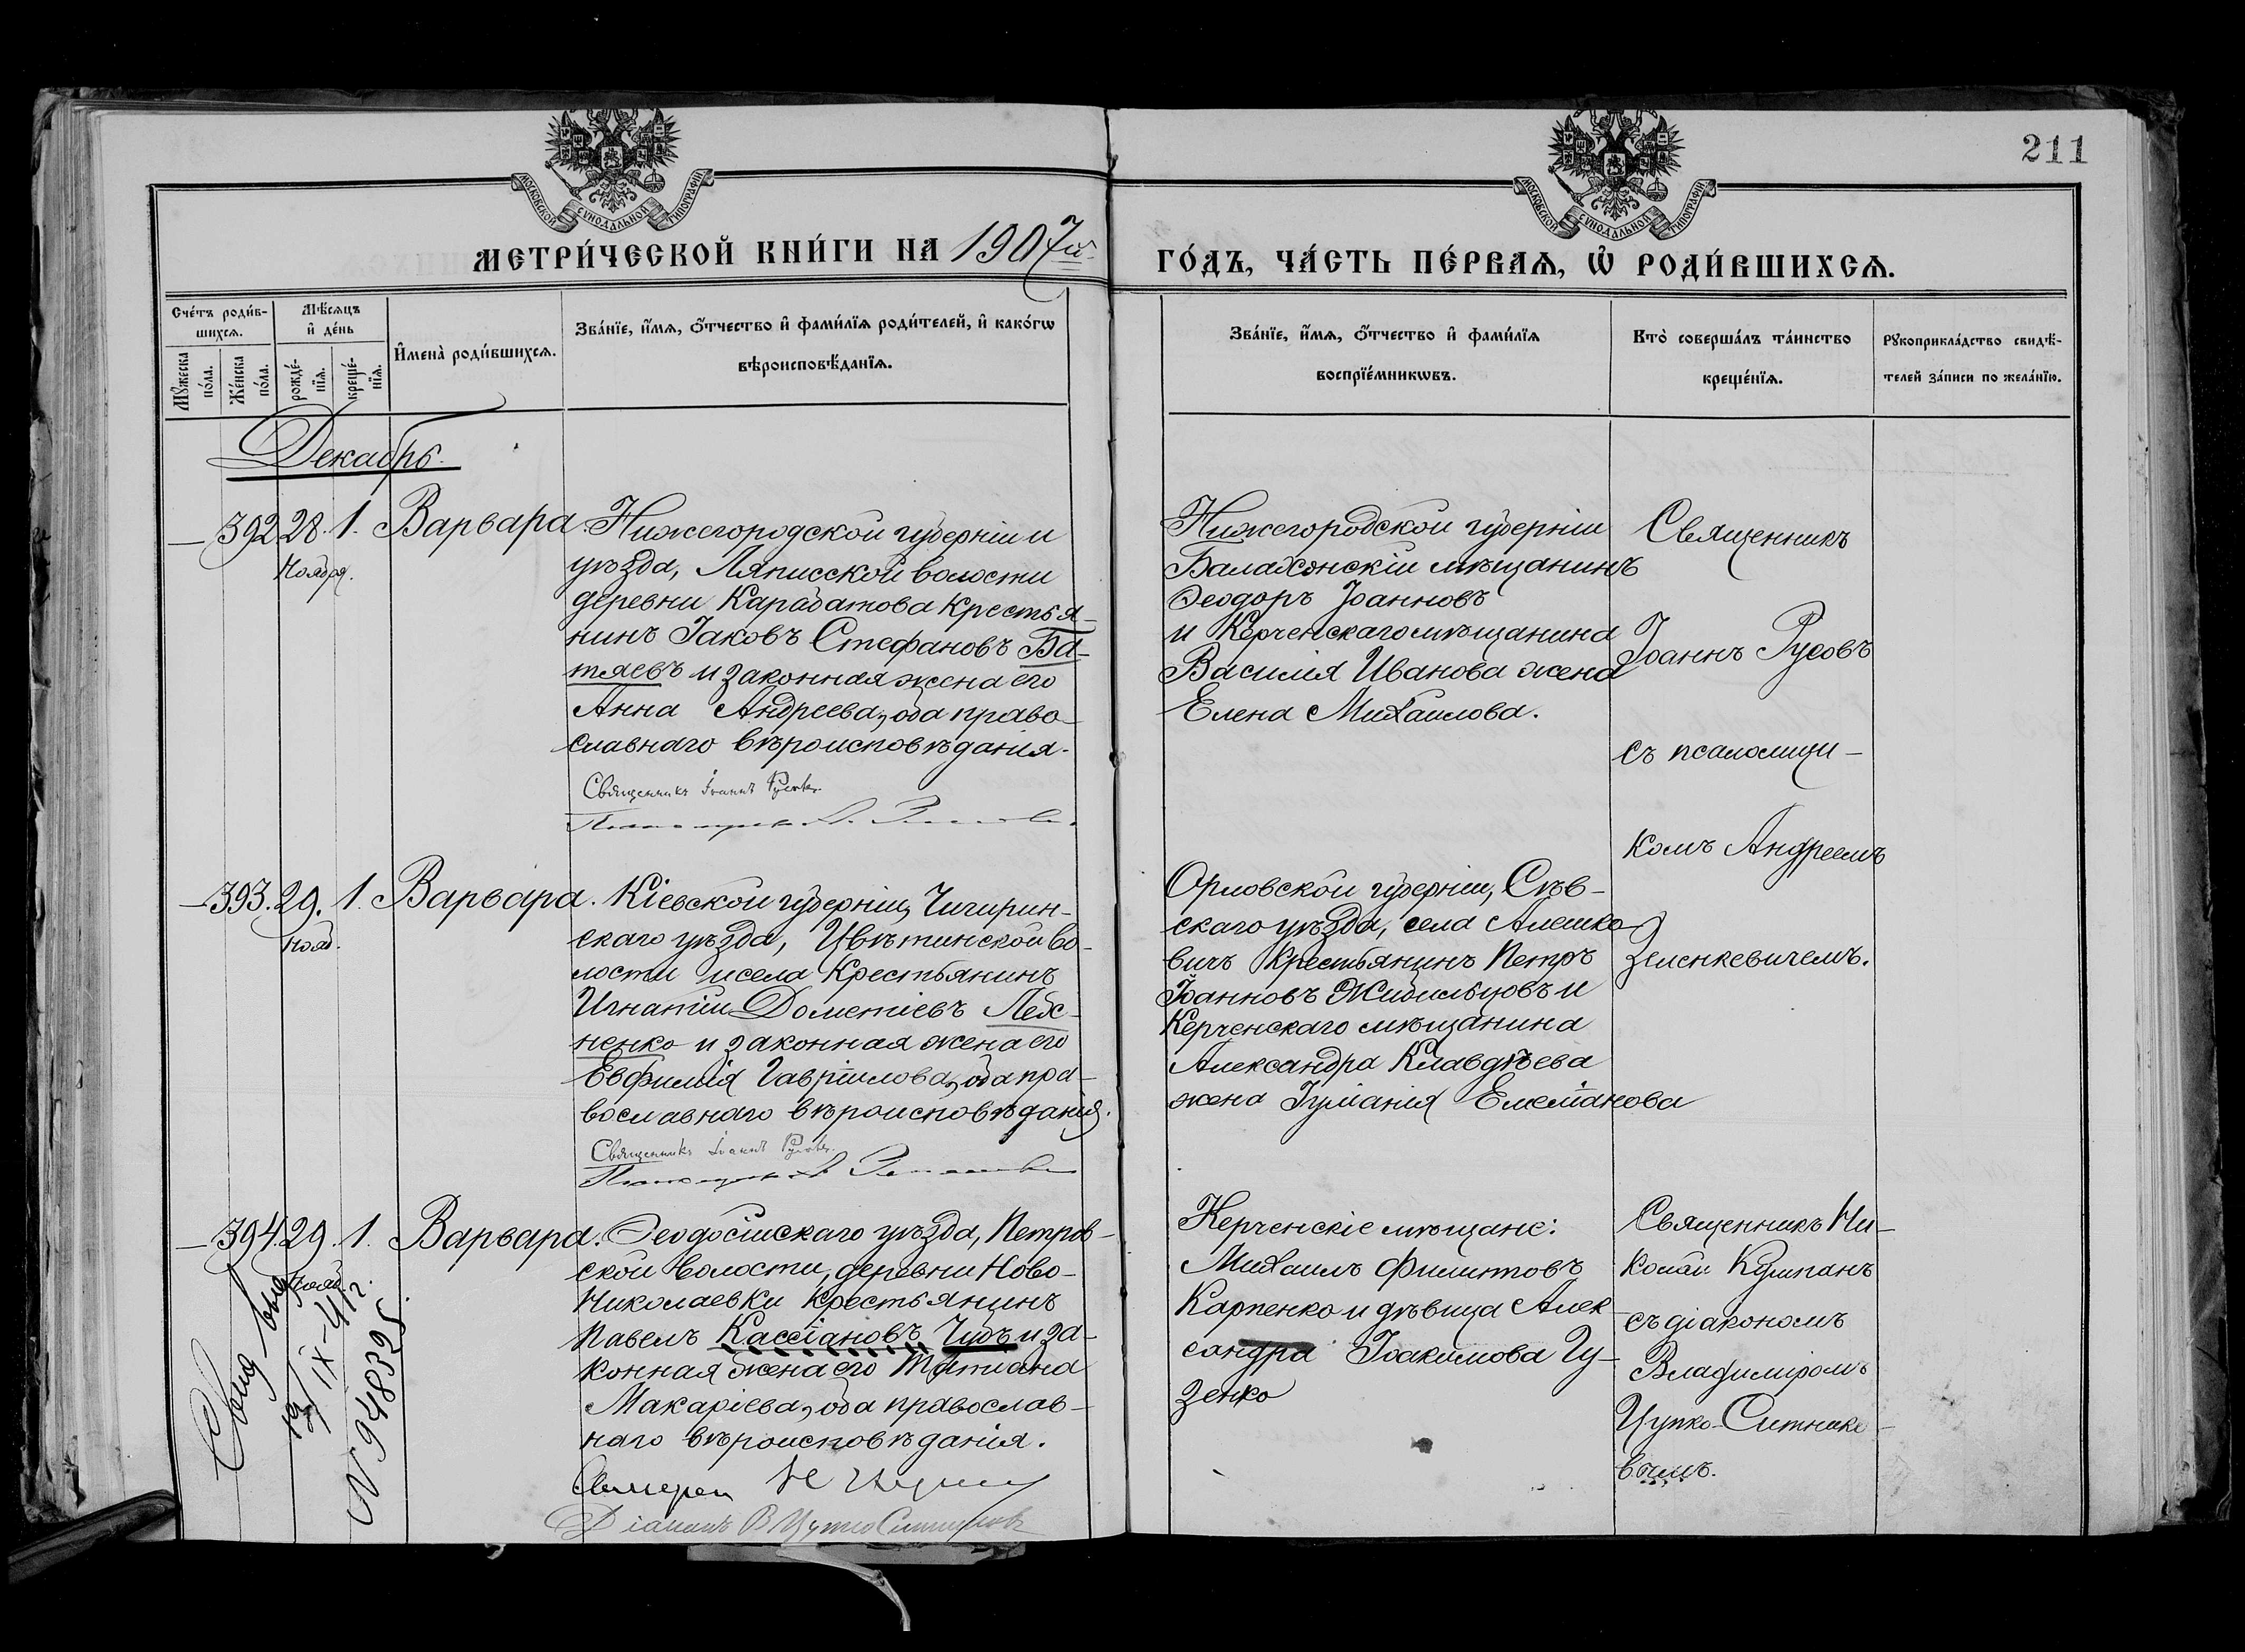 МОСКОВСКОЙ СУНОДАЛЬНОЙ ТИПОГРАФІИ
МОСКОВСКОЙ СУНОДАЛЬНОЙ ТИПОГРАФІИ
211
МЕТРИ́ЧЕСКОЙ КНИ́ГИ НА 1907й
ГО́ДЪ, ЧА́СТЬ ПЕ́РВАѦ, Ѡ҆ РОДИ́ВШИХСѦ.
Сче́тъ роди́в-
шихсѧ.
Мꙋ́жеска по́ла.
Же́нска по́ла.
Мѣ́сѧцъ
и҆ де́нь
рожде́-нїѧ.
креще́-нїѧ.
И҆мена̀ роди́вшихсѧ.
Зва́нїе, и҆́мѧ, ѻ҆́тчество и҆ фами́лїѧ роди́телей, и҆ како́гѡ
вѣроисповѣ́данїѧ.
Зва́нїе, и҆́мѧ, ѻ҆́тчество и҆ фами́лїѧ
воспрїе́мникѡвъ.
Кто̀ соверша́лъ та́инство
креще́нїѧ.
Рꙋкоприкла́дство свидѣ́-
телей за́писи по жела́нїю.
Декабрь.
— 392 28. 1. Варвара.
Ноября.
Нижегородской губерніи и
уѣзда, Ляписской волости
деревни Карабатова крестья-
нинъ Іаковъ Стефановъ Ба-
тяевъ и законная жена его
Анна Андреева, оба право-
славнаго вѣроисповѣданія.
Священникъ Іоаннъ Русовъ.
Нижегородской губерніи
Балахонскій мѣщанинъ
Ѳеодоръ Іоанновъ
и Керченскаго мѣщанина
Василія Иванова жена
Елена Михаилова.
Священникъ
Іоаннъ Русовъ
съ псаломщи-
комъ Андреемъ
Зеленкевичемъ.
— 393. 29. 1. Варвара.
нояб.
Кіевской губерніи, Чигирин-
скаго уѣзда, Цвѣтинской во-
лости и села крестьянинъ
Игнатій Дометіевъ Лех-
ненко и законная жена его
Евфимія Гавріилова, оба пра-
вославнаго вѣроисповѣданія.
Священникъ Іоаннъ Русовъ.
Орловской губерніи, Сѣв-
скаго уѣзда, села Алешко-
вичъ крестьянинъ Петръ
Іоанновъ Жидильцовъ и
Керченскаго мѣщанина
Александра Клавдѣева
жена Іуліанія Емеліанова
— 394 29. 1. Варвара.
нояб.
Ѳеодосійскаго уѣзда, Петров-
ской волости, деревни Ново-
Николаевки крестьянинъ
Павелъ Кассіановъ Чубъ и за-
конная жена его Татіана
Макаріева, оба православ-
наго вѣроисповѣданія.
Діаконъ В Цупко Ситниковъ
Керченскіе мѣщане:
Михаилъ Филитовъ
Карпенко и дѣвица Алек-
сандра Іоакимова Гу-
зенко
Священникъ Ни-
колай Кумпанъ
съ діакономъ
Владиміромъ
Цупко-Ситнико-
вымъ.
19/IX-41г.
N 948325